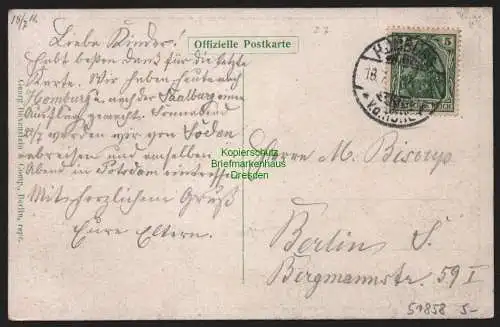 18/7 12.
27
Offizielle Postkarte
Liebe Kinder!
Habt besten Dank für die letzte
Karte. Wir haben heute nach
Homburg u. nach der Saalburg einen
Ausflug gemacht. Sonnabend
werden wir von Soden
abreisen und am selben
Abend in Potsdam eintreffen.
Mit herzlichem Gruß
Eure Eltern.
5
Kopierschutz
Briefmarkenhaus
Dresden
Herrn M.
Berlin S.
Bergmannstr. 59 I
Georg Büxenstein & Comp., Berlin, repr.
51858 5-